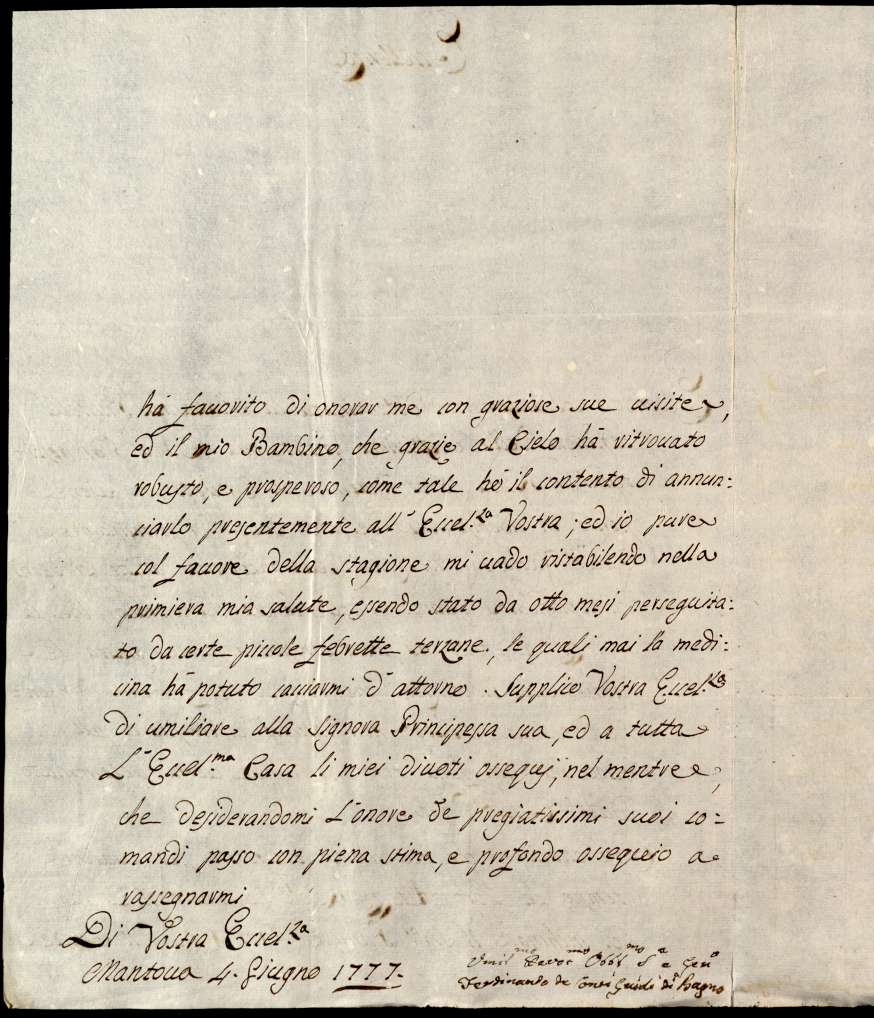 hà favorito di onorar me con graziose sue visite,
ed il mio Bambino, che grazie al Cielo hà ritrovato
robusto, e prosperoso, come tale hò il contento di annun:
ciarlo presentemente all' Eccel.za Vostra; ed io pure
col favore della stagione mi vado ristabilendo nella
primiera mia salute, essendo stato da otto mesi perseguita:
to da certe piccole febrette terzane, le quali mai la medi:
cina hà potuto cacciarmi d'attorno. Supplico Vostra Eccel.za
di umiliare alla Signora Principessa sua, ed a tutta
L'Eccel.ma Casa li miei divoti ossequj, nel mentre,
che desiderandomi L'onore de pregiatissimi suoi co:
mandi passo con piena stima, e profondo ossequio a
rassegnarmi
Di Vostra Eccel.za
Mantova 4. Giugno 1777.
Umil.mo Devot.mo Obbl.mo S.e
Ferdinando de Conti Guidi di Bagno